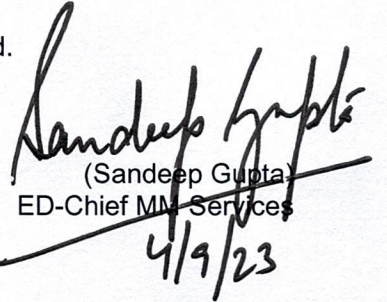 d.
Sandeep Gupta
(Sandeep Gupta)
ED-Chief MM Services
4/9/23